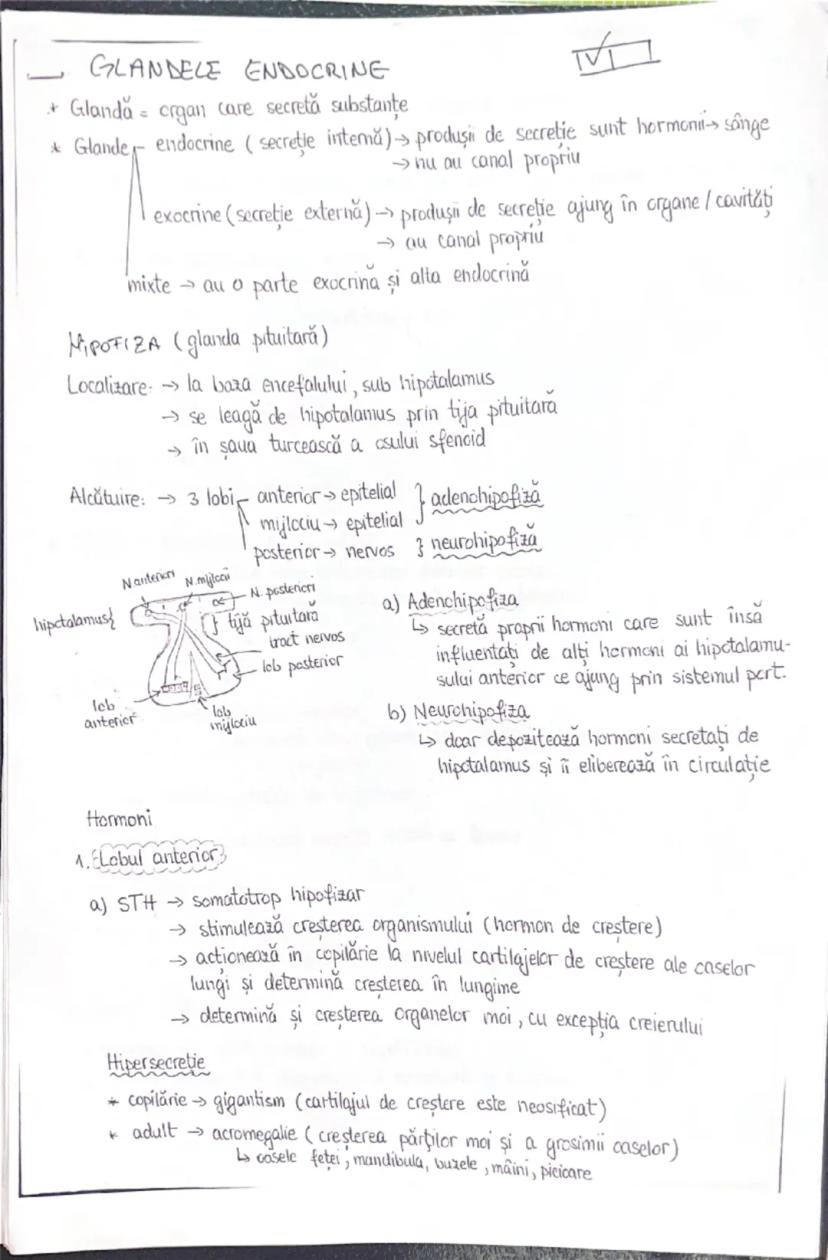 GLANDELE ENDOCRINE
* Glandă = organ care secretă substanțe
* Glande endocrine (secreție internă) → produșii de secreție sunt hormonii → sânge
→ nu au canal propriu
exocrine (secreție externă) → produșii de secreție ajung în organe / cavități
→ au canal propriu
mixte → au o parte exocrină și alta endocrină
HIPOFIZA (glanda pituitară)
Localizare: → la baza encefalului, sub hipotalamus
→ se leagă de hipotalamus prin tija pituitară
→ în șaua turcească a osului sfenoid
Alcătuire: → 3 lobi anterior → epitelial } adenohipofiză
mijlociu → epitelial
posterior → nervos } neurohipofiză
N anteriori N. mijlocii N. posteriori
hipotalamus {
} tijă pituitară
tract nervos
lob posterior
lob anterior
lob mijlociu
a) Adenohipofiza
↳ secretă proprii hormoni care sunt însă
influențați de alți hormoni ai hipotalamu-
sului anterior ce ajung prin sistemul port.
b) Neurohipofiza
↳ doar depozitează hormoni secretați de
hipotalamus și îi eliberează în circulație
Hormoni
1. Lobul anterior
a) STH → somatotrop hipofizar
→ stimulează creșterea organismului (hormon de creștere)
→ acționează în copilărie la nivelul cartilajelor de creștere ale oaselor
lungi și determină creșterea în lungime
→ determină și creșterea organelor moi, cu excepția creierului
Hipersecreție
* copilărie → gigantism (cartilajul de creștere este neosificat)
* adult → acromegalie (creșterea părților moi și a grosimii oaselor)
↳ oasele feței, mandibula, buzele, mâini, picioare